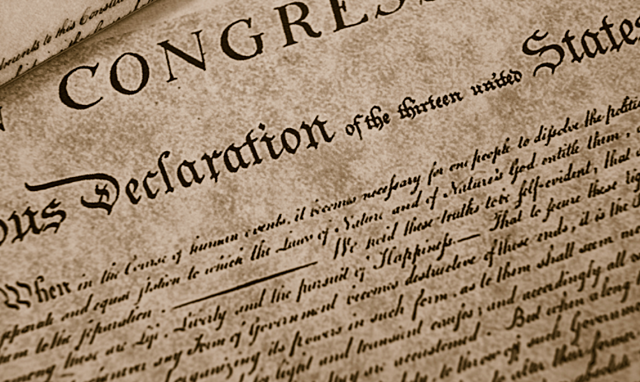 to this Constitu
CONGRESS
Declaration of the thirteen united States
When in the Course of human events, it becomes necessary for one people to dissolve the politi
and equal station to which the Laws of Nature and of Nature's God entitle them,
to the separation. We hold these truths to be self-evident, that
among these are Life, Liberty and the pursuit of Happiness.— That to secure these rig
any Form of Government becomes destructive of these ends, it is the
organizing its powers in such form, as to them shall seem mo
light and transient causes; and accordingly all
they are accustomed. But when a long
to throw off such Governm